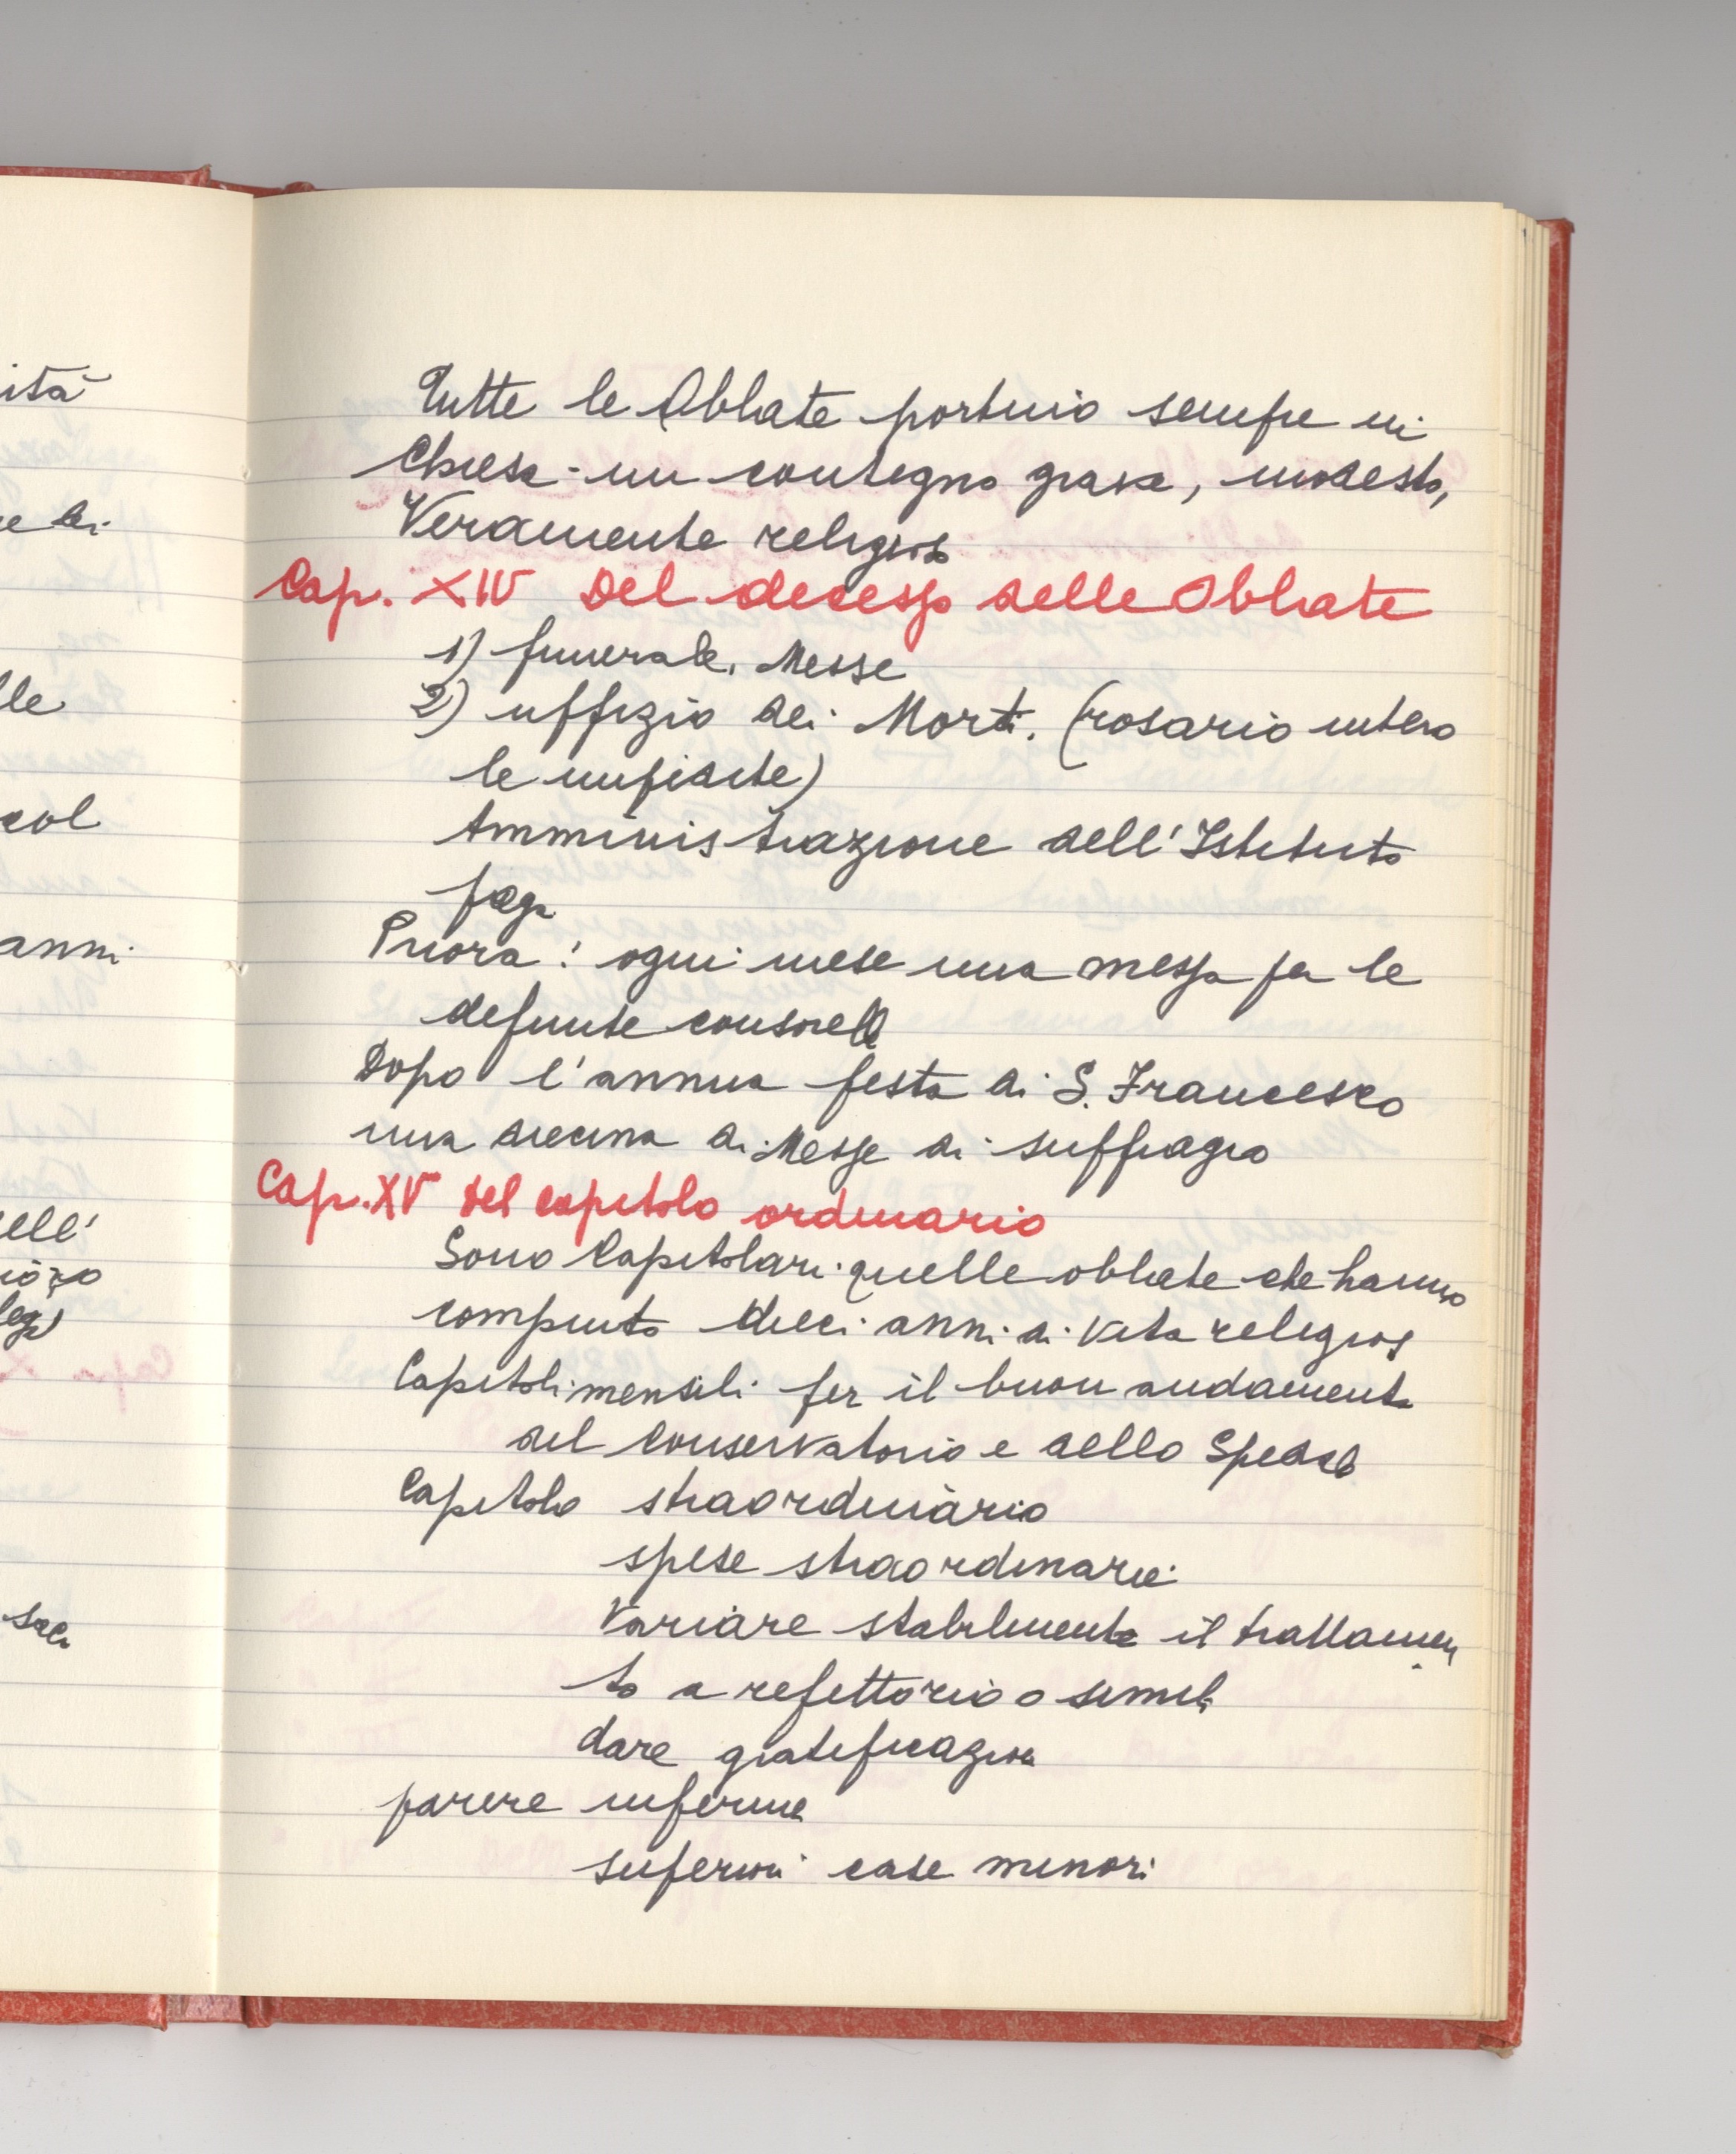 Tutte le Oblate portino sempre in
Chiesa - un contegno grave, modesto,
Veramente religioso
Cap. XIV Del decesso delle Oblate
1) funerale. Messe
2) uffizio dei Morti. (rosario intero
le impedite)
Amministrazione dell'Istituto
paga
Priora: ogni mese una messa per le
defunte consorelle
Dopo l'annua festa di S. Francesco
una diecina di Messe di suffragio
Cap. XV Del capitolo ordinario
Sono Capitolari quelle oblate che hanno
compiuto dieci anni di vita religiosa
Capitoli mensili per il buon andamento
del Conservatorio e dello Spedale
Capitolo straordinario
spese straordinarie
Variare stabilmente il trattamen
to a refettorio o simili
dare gratificazioni
parere inferme
superiori case minori
ità
lle
col
anni
dell'